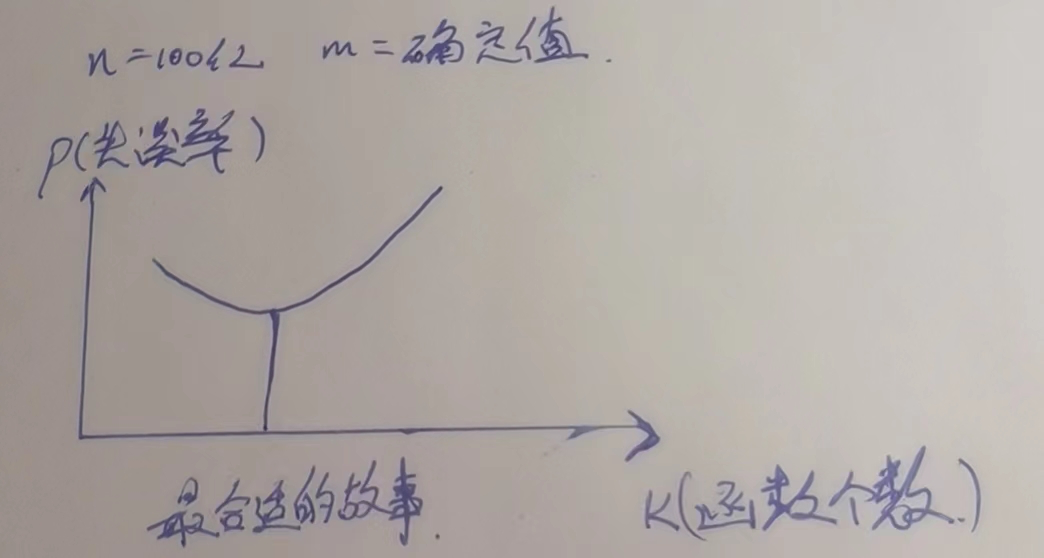 n=100亿 m=确定值.
P(失误率)
最合适的故事.
K(函数个数.)